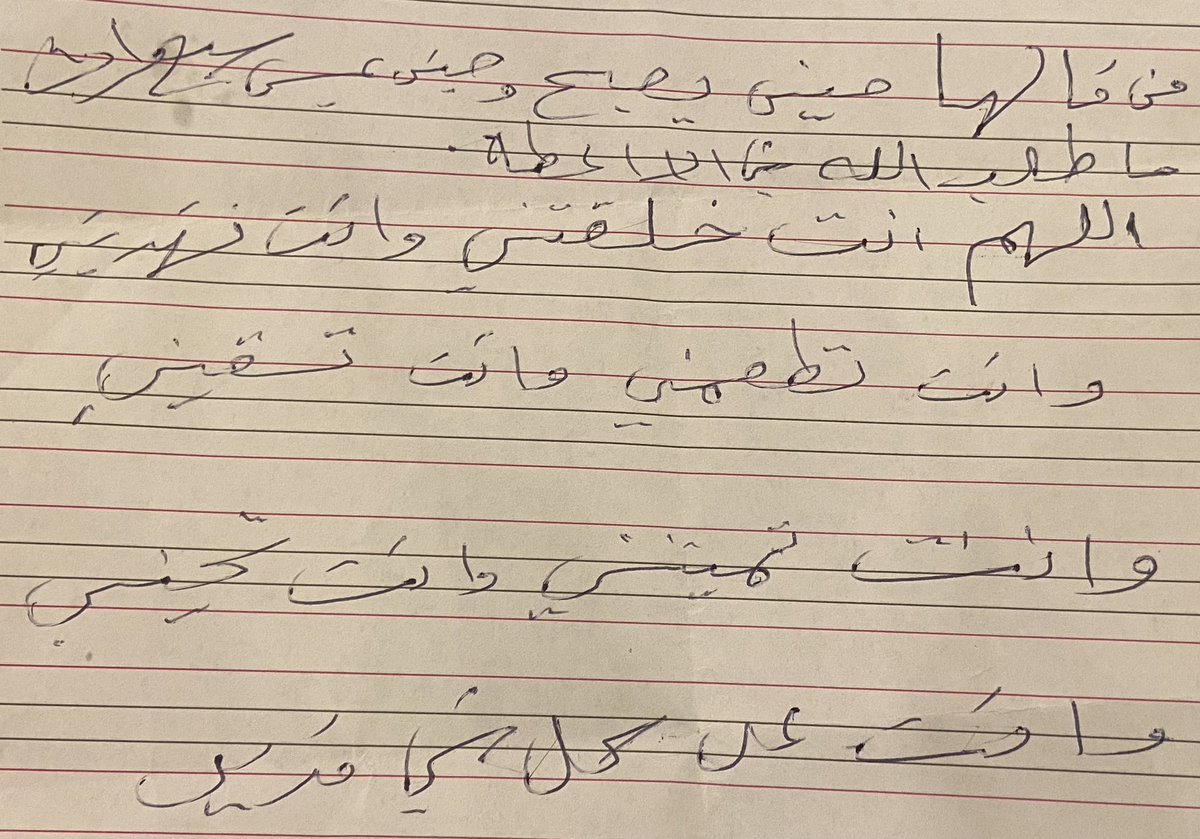 من قالها حين يصبح وحين يمسي
ما طلب الله شيئا الا اعطاه.
اللهم انت خلقتني وانت تهديني
وانت تطعمني وانت تسقيني
وانت تميتني وانت تحيني
وانت على كل شي قدير